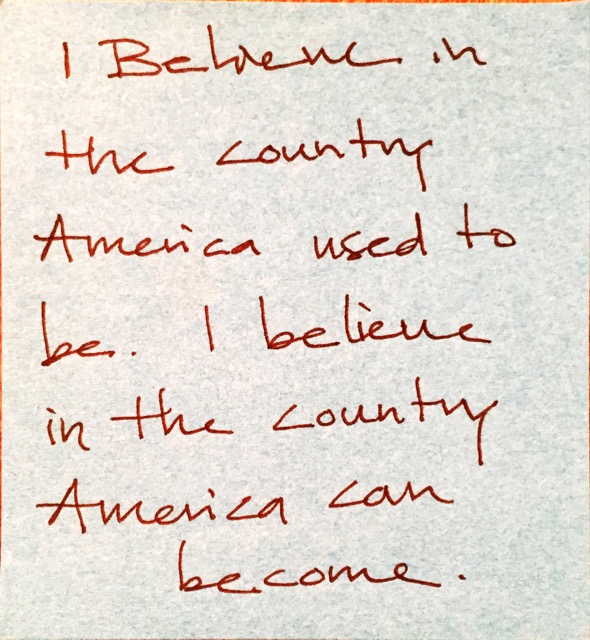 I Believe in
the country
America used to
be. I believe
in the country
America can
become.